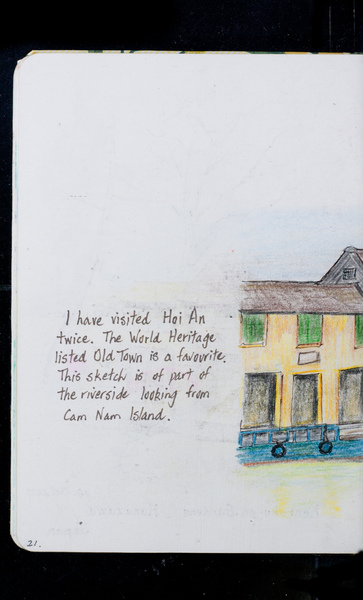 I have visited Hoi An
twice. The World Heritage
listed Old Town is a favourite.
This sketch is of part of
the riverside looking from
Cam Nam Island.
21.